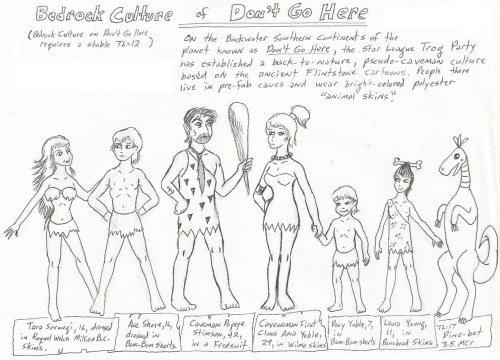 Bedrock Culture of Don't Go Here
(Bedrock Culture on Don't Go Here
requires a stable TL-12)
On the Backwater Southern Continents of the
planet known as Don't Go Here, the Star League Trog Party
has established a back-to-nature, pseudo-caveman culture
based on the ancient Flintstone cartoons. People there
live in pre-fab caves and wear bright-colored polyester
"animal skins".
Tara 16, dressed
in Raquel Welch Million B.C.
Skins.
Ace Shere, 16,
dressed in
Bam-Bam shorts.
Caveman Popeye
Stimson, 42,
in a Fredsuit.
Cavewoman First
Class Ana Yable,
29, in Wilma skins
Davy Yable, 7,
in
Bam-Bam shorts.
Laura Young,
11, in
skins
TL-17
Dino-bot
3.5 MCr